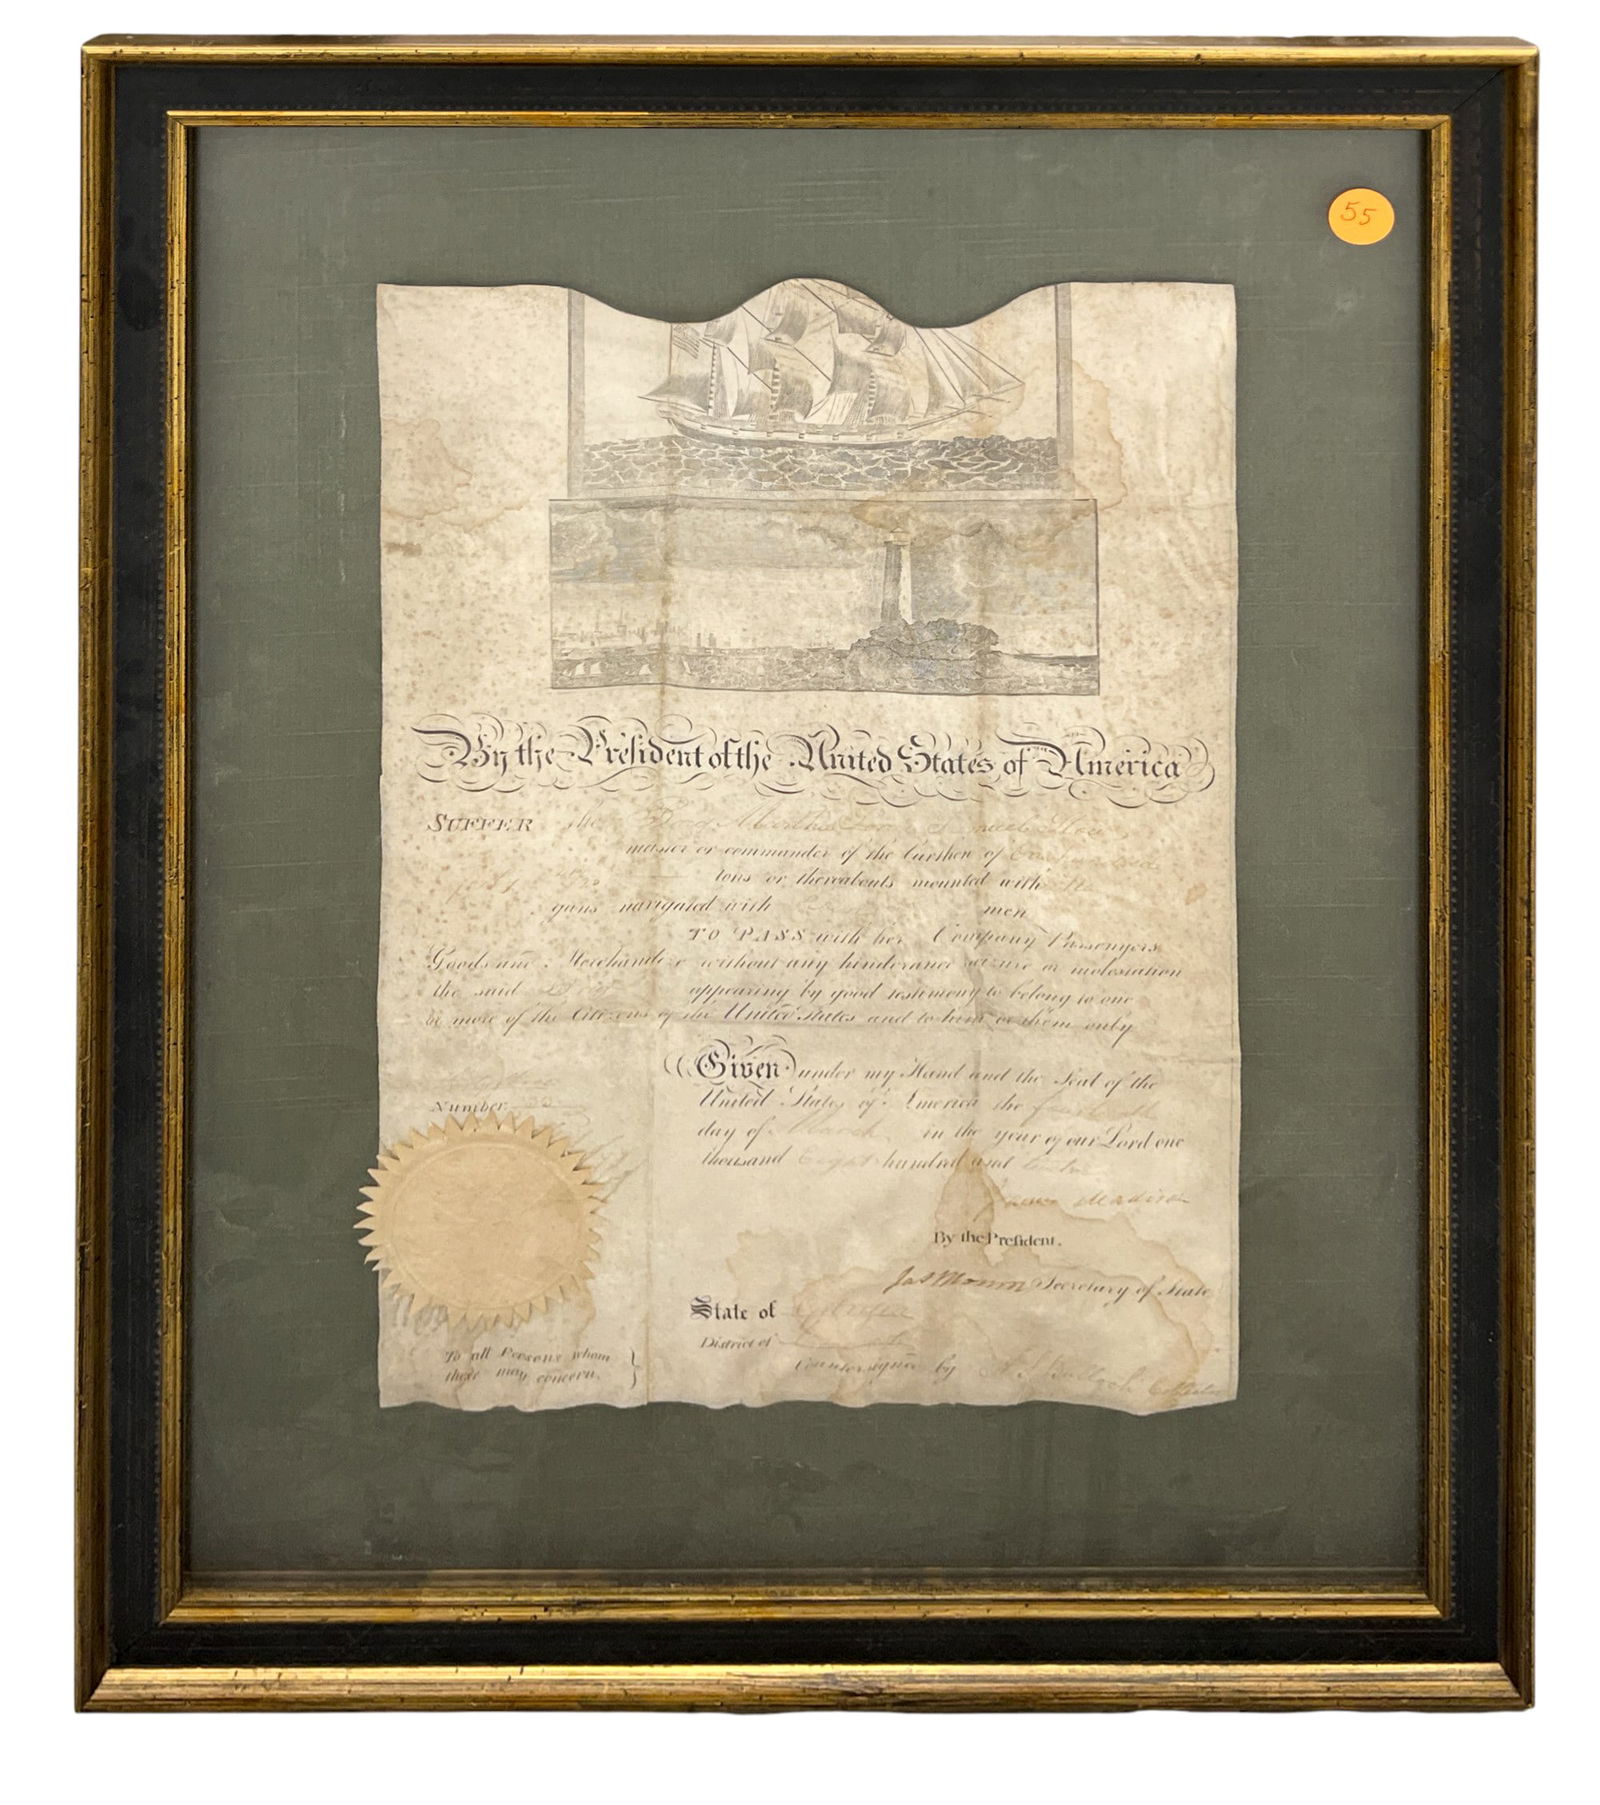 55
By the President of the United States of America
SUFFER the Brig Samuel
master or commander of the burthen of One hundred
tons or thereabouts mounted with
guns navigated with men
TO PASS with her Company Passengers
Goods and Merchandize without any hinderance seizure or molestation
the said appearing by good testimony to belong to one
or more of the Citizens of the United States and to him or them only
Given under my Hand and the Seal of the
United States of America the fourteenth
day of March in the year of our Lord one
thousand Eight hundred and twelve
Number
James Madison
By the President.
Jas Monroe Secretary of State
State of
District of
Countersigned by A S Bulloch Collector
To all Persons whom
these may concern.